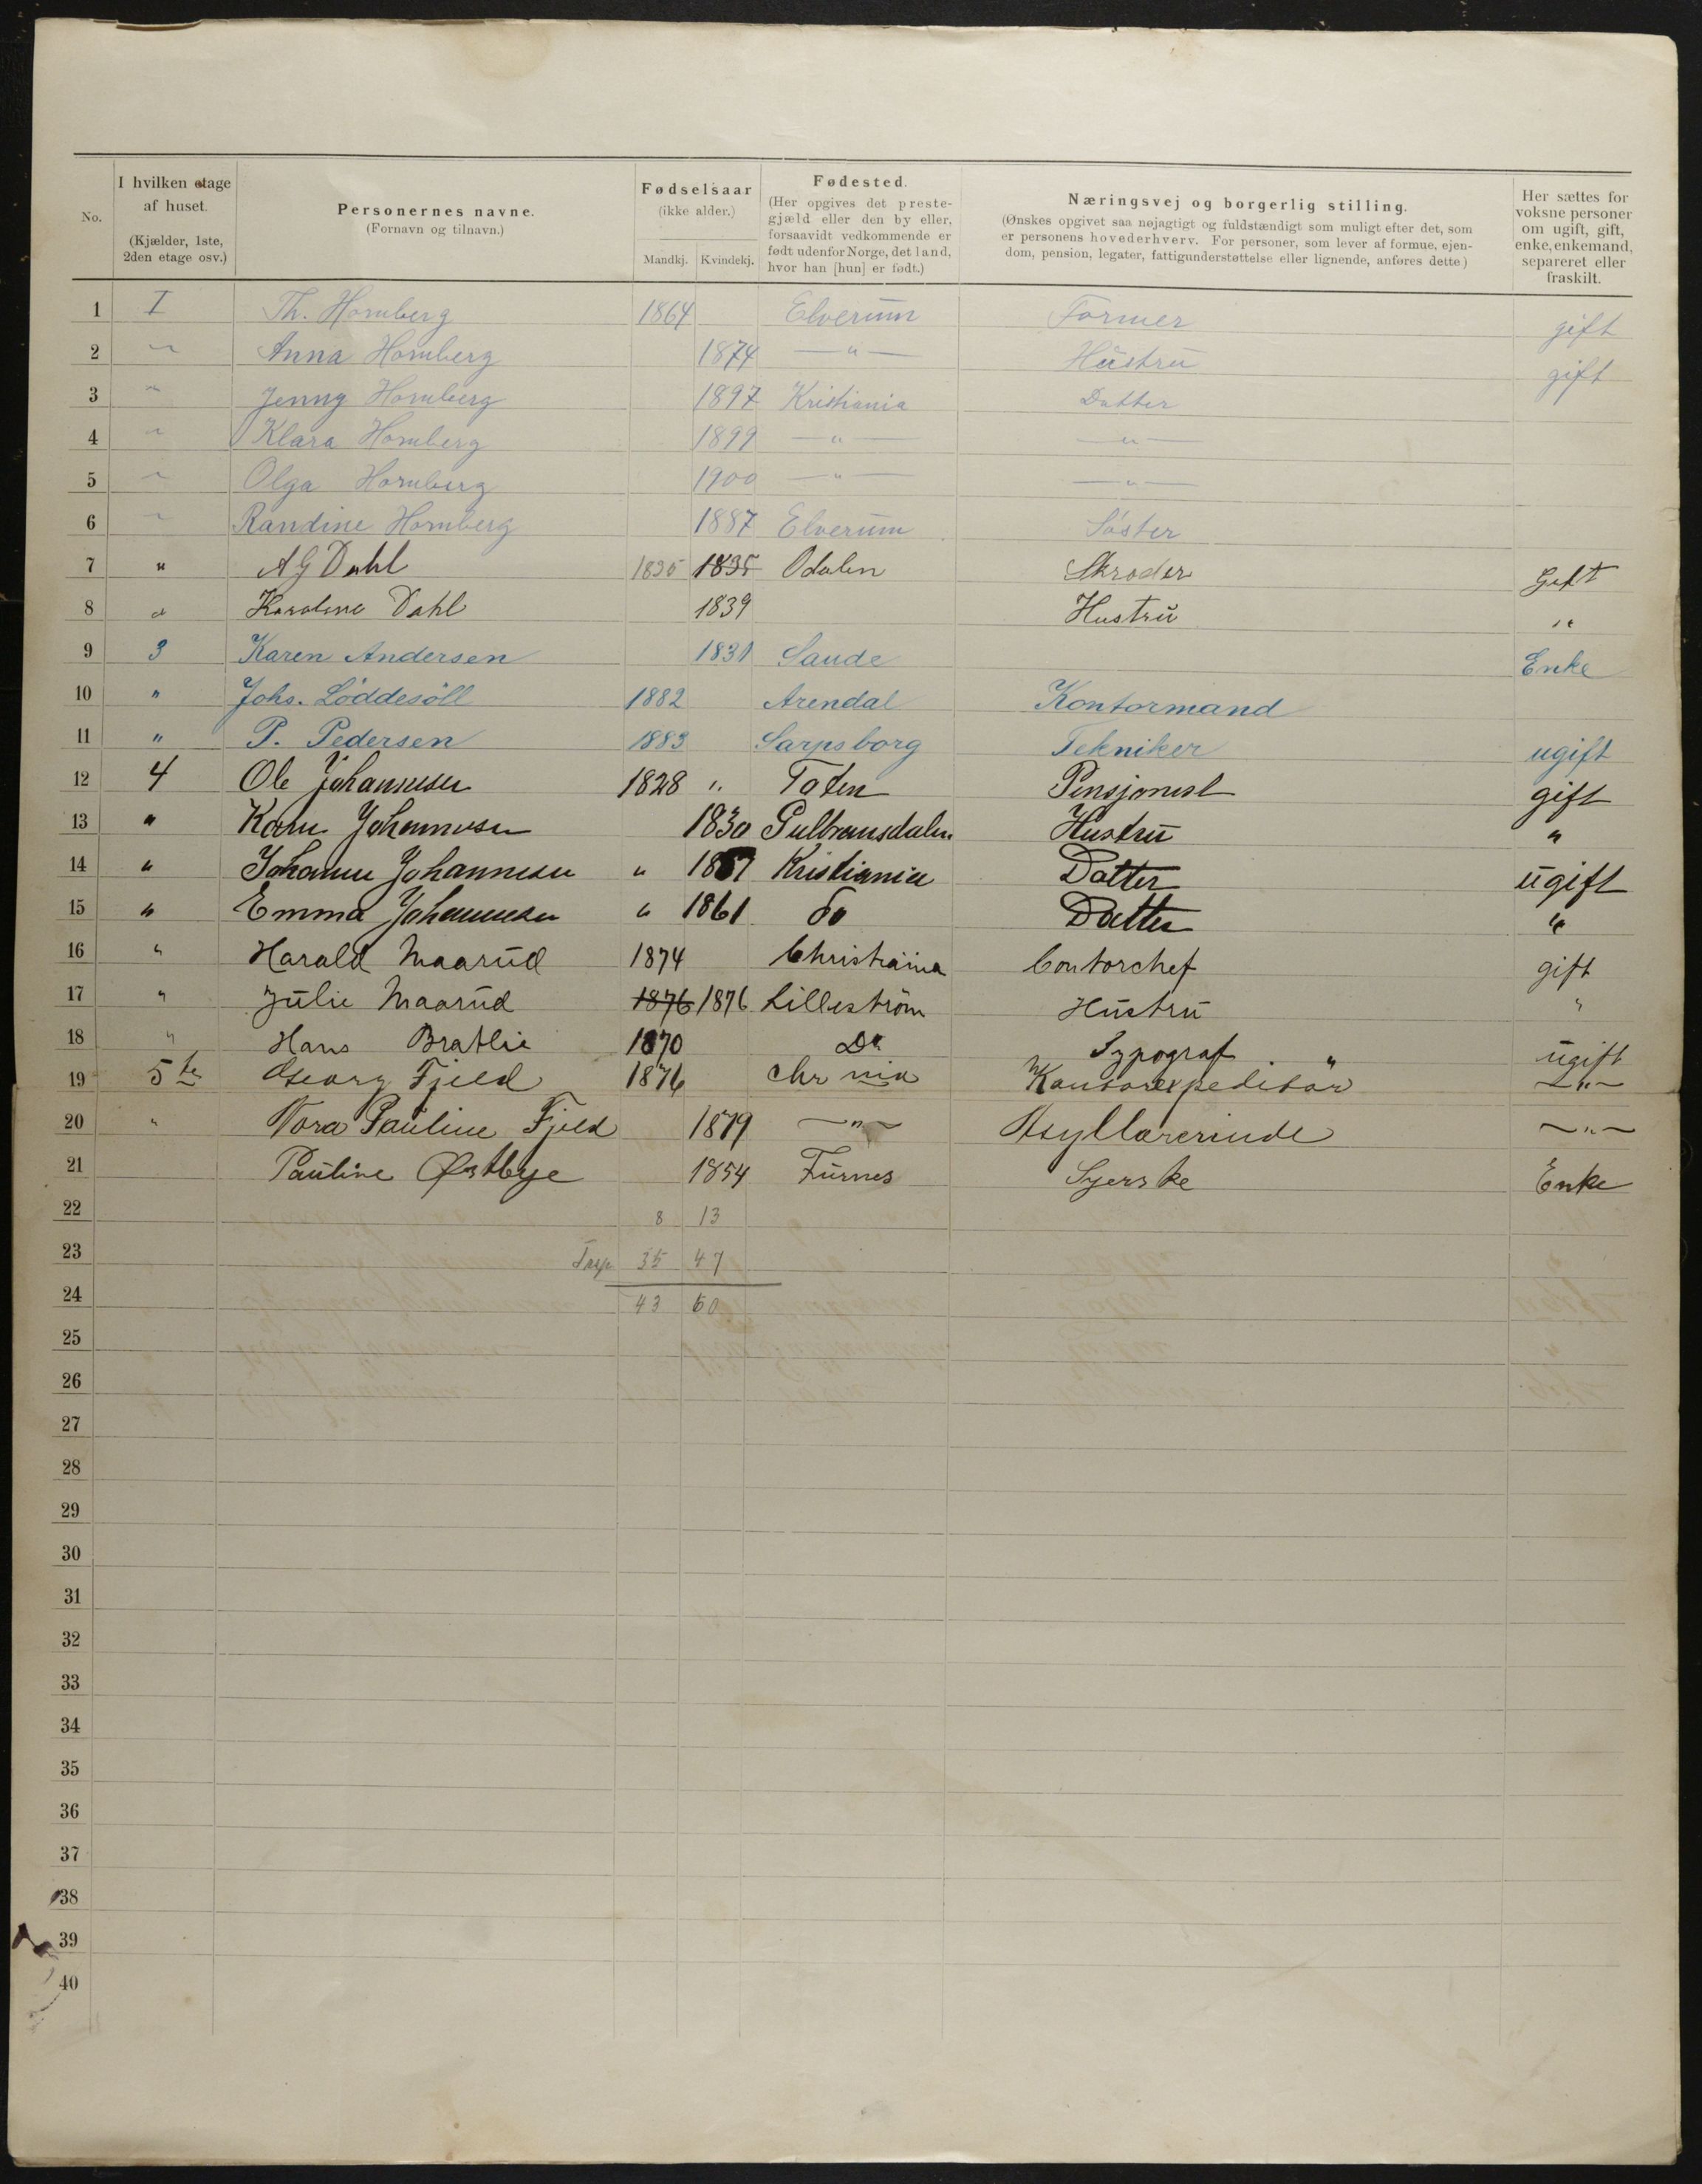 No.
I hvilken etage af huset.
(Kjælder, 1ste, 2den etage osv.)
Personernes navne.
(Fornavn og tilnavn.)
Fødselsaar
(ikke alder.)
Mandkj. Kvindekj.
Fødested.
(Her opgives det preste-
gjæld eller den by eller,
forsaavidt vedkommende er
født udenfor Norge, det land,
hvor han [hun] er født.)
Næringsvej og borgerlig stilling.
(Ønskes opgivet saa nøjagtigt og fuldstændigt som muligt efter det, som
er personens hovederhverv. For personer, som lever af formue, ejen-
dom, pension, legater, fattigunderstøttelse eller lignende, anføres dette)
Her sættes for
voksne personer
om ugift, gift,
enke, enkemand,
separeret eller
fraskilt.
1 I Th. Hornberg 1864 Elverum Former gift
2 " Anna Hornberg 1874 —"— Hustru gift
3 " Jenny Hornberg 1897 Kristiania Datter
4 " Klara Hornberg 1899 —"— —"—
5 " Olga Hornberg 1900 —"— —"—
6 " Randine Hornberg 1887 Elverum Söster
7 " A G Dahl 1835 1835 Odalen Skræder Gift
8 " Karoline Dahl 1839 Hustru "
9 3 Karen Andersen 1831 Saude Enke
10 " Johs. Löddesöll 1882 Arendal Kontormand
11 " P. Pedersen 1883 Sarpsborg Tekniker ugift
12 4 Ole Johannesen 1828 " Toten Pensjonist gift
13 " Karen Johannesen 1830 Gulbransdalen Hustru "
14 " Johanne Johannesen " 1857 Kristiania Datter ugift
15 " Emma Johannesen " 1861 do Datter "
16 " Harald Maarud 1874 Christiania Contorchef gift
17 " Julie Maarud 1876 1876 Lilleström Hustru "
18 " Hans Bratlie 1870 Do Typograf " ugift
19 5te Georg Fjeld 1876 Chrnia Kontorexpeditör —"—
20 " Nora Pauline Fjeld 1879 —"— Asyllærerinde —"—
21 Pauline Østbye 1854 Furnes Syerske Enke
22 8 13
23 Trsp. 35 47
24 43 60
25
26
27
28
29
30
31
32
33
34
35
36
37
38
39
40